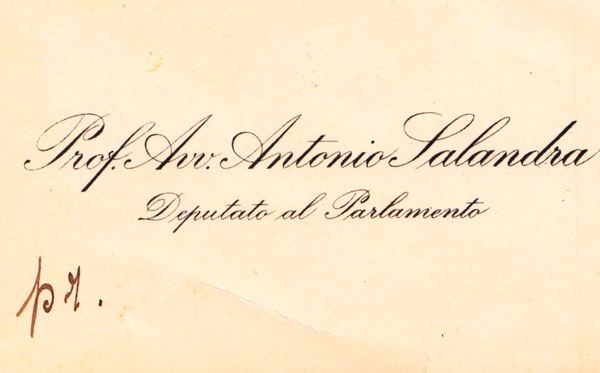 Prof. Avv. Antonio Salandra
Deputato al Parlamento
pr.